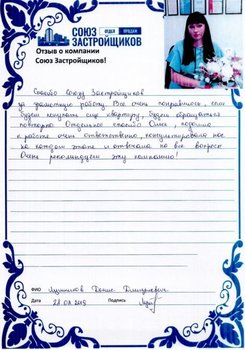 СОЮЗ ОТДЕЛ ПРОДАЖ
ЗАСТРОЙЩИКОВ
Отзыв о компании
Союз Застройщиков!
Спасибо Союзу Застройщиков
за грамотную работу. Все очень понравилось если
будем покупать еще квартиру, будем обращаться
повторно. Отдельное спасибо Ольге, подошла
к работе очень ответственно, консультировала нас
на каждом этапе и отвечала на все вопросы
Очень рекомендуем эту компанию!
ФИО Денис Дмитриевич
Дата Подпись